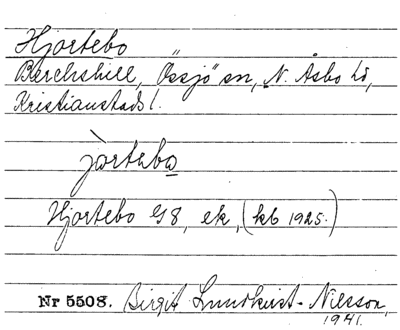 Hjortebo
Berchshill, Össjö sn, N. Åsbo hd,
Kristianstads l.
jàrtəbo
Hjortebo G8, ek, (kb 1925.)
Nr 5508. Birgit Lundkvist-Nilsson,
1941.